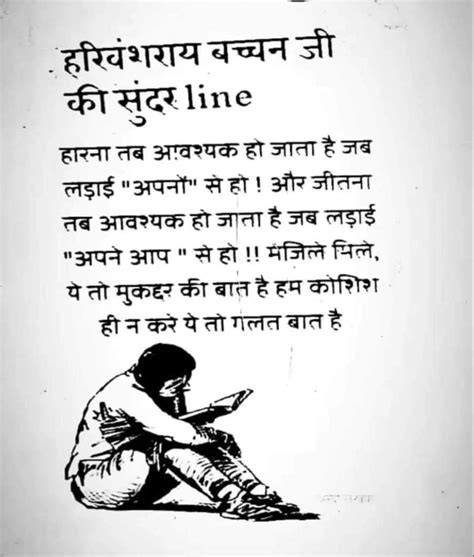 हरिवंशराय बच्चन जी
की सुंदर line
हारना तब आवश्यक हो जाता है जब
लड़ाई "अपनों" से हो ! और जीतना
तब आवश्यक हो जाता है जब लड़ाई
"अपने आप " से हो !! मंजिले मिले,
ये तो मुकद्दर की बात है हम कोशिश
ही न करे ये तो गलत बात है